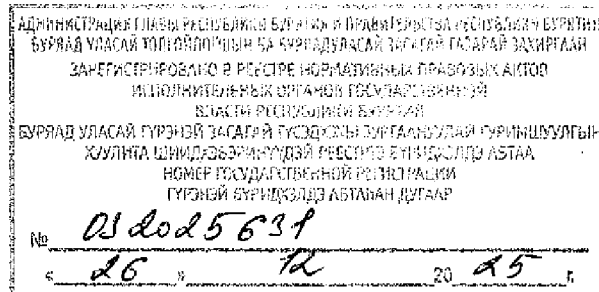 АДМИНИСТРАЦИЯ ГЛАВЫ РЕСПУБЛИКИ БУРЯТИЯ И ПРАВИТЕЛЬСТВА РЕСПУБЛИКИ БУРЯТИЯ
БУРЯАД УЛАСАЙ ТОЛГОЙЛОГШЫН БА БУРЯАД УЛАСАЙ ЗАСАГАЙ ГАЗАРАЙ ЗАХИРГААН
ЗАРЕГИСТРИРОВАНО В РЕЕСТРЕ НОРМАТИВНЫХ ПРАВОВЫХ АКТОВ
ИСПОЛНИТЕЛЬНЫХ ОРГАНОВ ГОСУДАРСТВЕННОЙ
ВЛАСТИ РЕСПУБЛИКИ БУРЯТИЯ
БУРЯАД УЛАСАЙ ГҮРЭНЭЙ ЗАСАГАЙ ГҮЙСЭДХЭХЫ ЗУРГААНУУДАЙ ГУРИМШУУЛГЫН
ХУУЛИТА ШИИДХЭБЭРИНҮҮДЭЙ РЕЕСТРТЭ БҮРИДХЭЛДЭ АБТАА
НОМЕР ГОСУДАРСТВЕННОЙ РЕГИСТРАЦИИ
ГҮРЭНЭЙ БҮРИДХЭЛДЭ АБТАҺАН ДУГААР
№ 032025631
« 26 » 12 20 25 г.